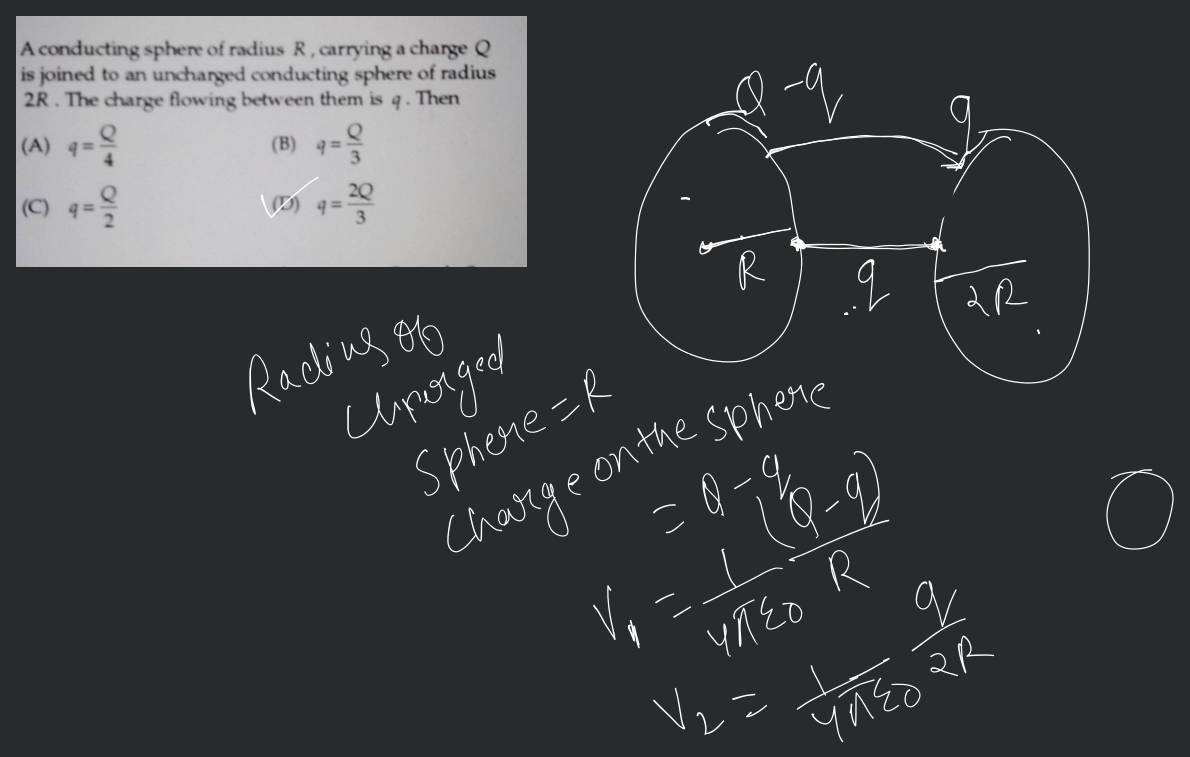 A conducting sphere of radius R, carrying a charge Q
is joined to an uncharged conducting sphere of radius
2R. The charge flowing between them is q. Then
(A) q = Q/4 (B) q = Q/3
(C) q = Q/2 (D) q = 2Q/3
Q - q
q
R
q
2R
Radius of
charged
Sphere = R
Charge on the sphere
= Q - q
V₁ = 1/4πε0 (Q - q)/R
V₂ = 1/4πε0 q/2R